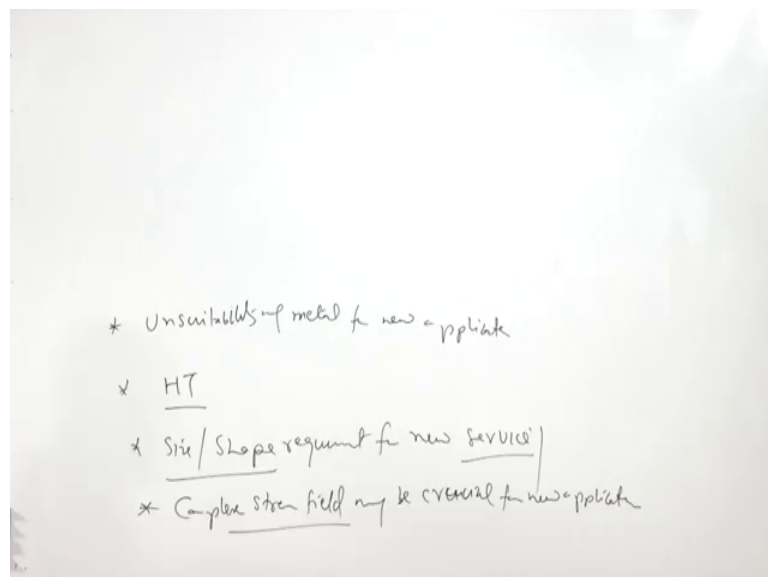 * Unsuitability of metal for new applicate
* HT
* Size/Shape requirment for new service
* Complex stress field may be crucial for new applicate